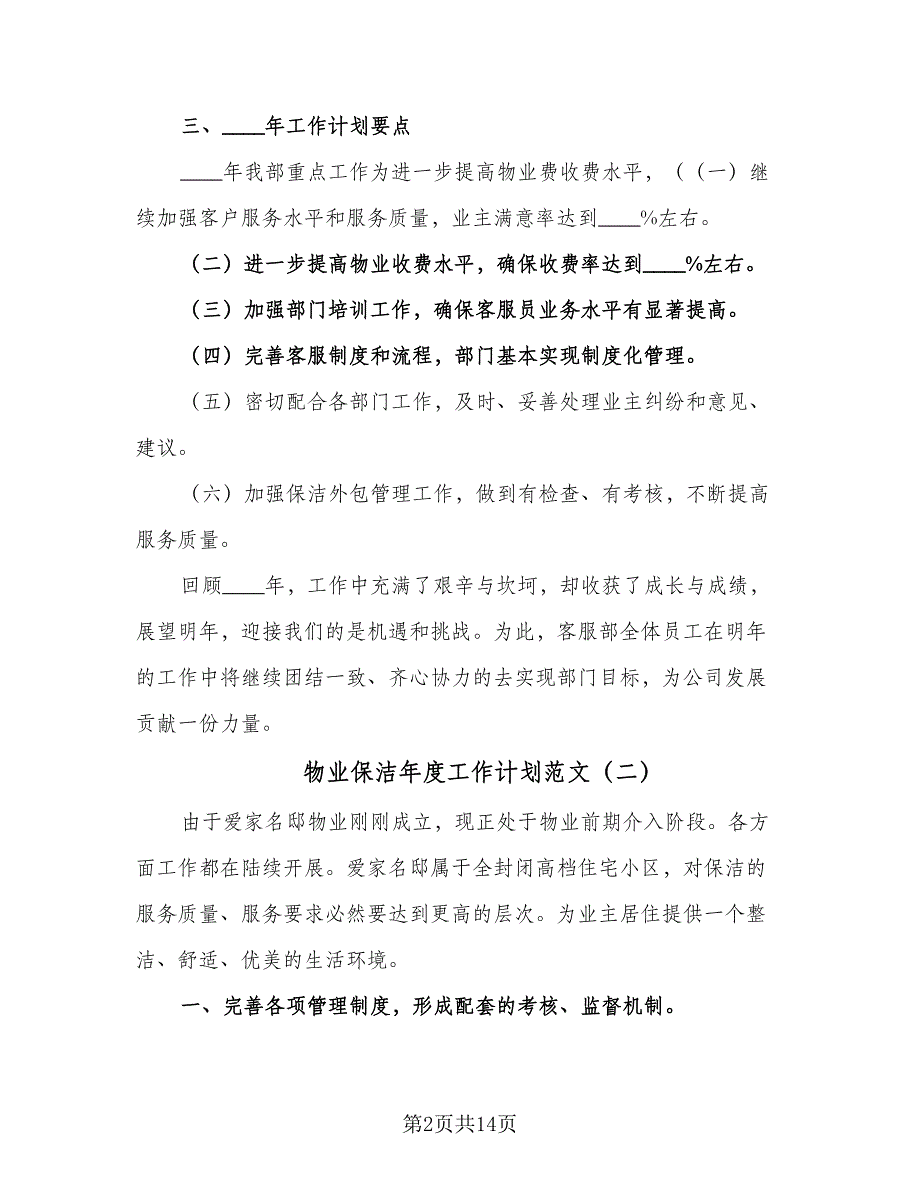 三、____年工作计划要点
____年我部重点工作为进一步提高物业费收费水平，（（一）继
续加强客户服务水平和服务质量，业主满意率达到____%左右。
（二）进一步提高物业收费水平，确保收费率达到____%左右。
（三）加强部门培训工作，确保客服员业务水平有显著提高。
（四）完善客服制度和流程，部门基本实现制度化管理。
（五）密切配合各部门工作，及时、妥善处理业主纠纷和意见、
建议。
（六）加强保洁外包管理工作，做到有检查、有考核，不断提高
服务质量。
回顾____年，工作中充满了艰辛与坎坷，却收获了成长与成绩，
展望明年，迎接我们的是机遇和挑战。为此，客服部全体员工在明年
的工作中将继续团结一致、齐心协力的去实现部门目标，为公司发展
贡献一份力量。
物业保洁年度工作计划范文（二）
由于爱家名邸物业刚刚成立，现正处于物业前期介入阶段。各方
面工作都在陆续开展。爱家名邸属于全封闭高档住宅小区，对保洁的
服务质量、服务要求必然要达到更高的层次。为业主居住提供一个整
洁、舒适、优美的生活环境。
一、完善各项管理制度，形成配套的考核、监督机制。
第2页共14页